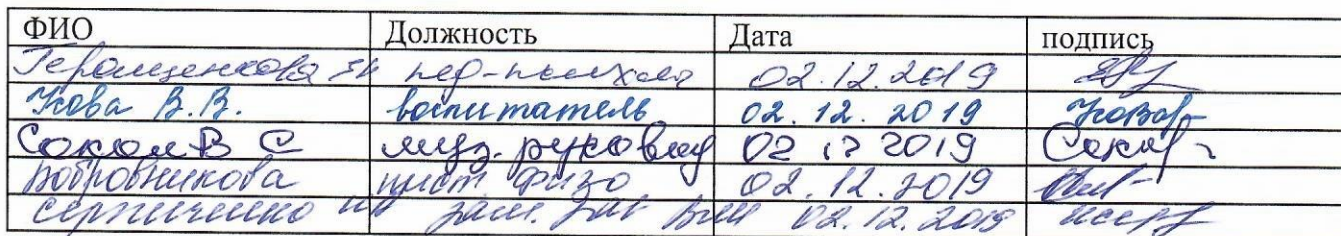 ФИО Должность Дата подпись
Геращенкова пед-психол 02.12.2019
Усова В.В. воспитатель 02.12.2019
Сокол В С муз. руковод 02 12 2019 Сокол
Бобровникова инст. физо 02.12.2019
зам. зав 02.12.2019